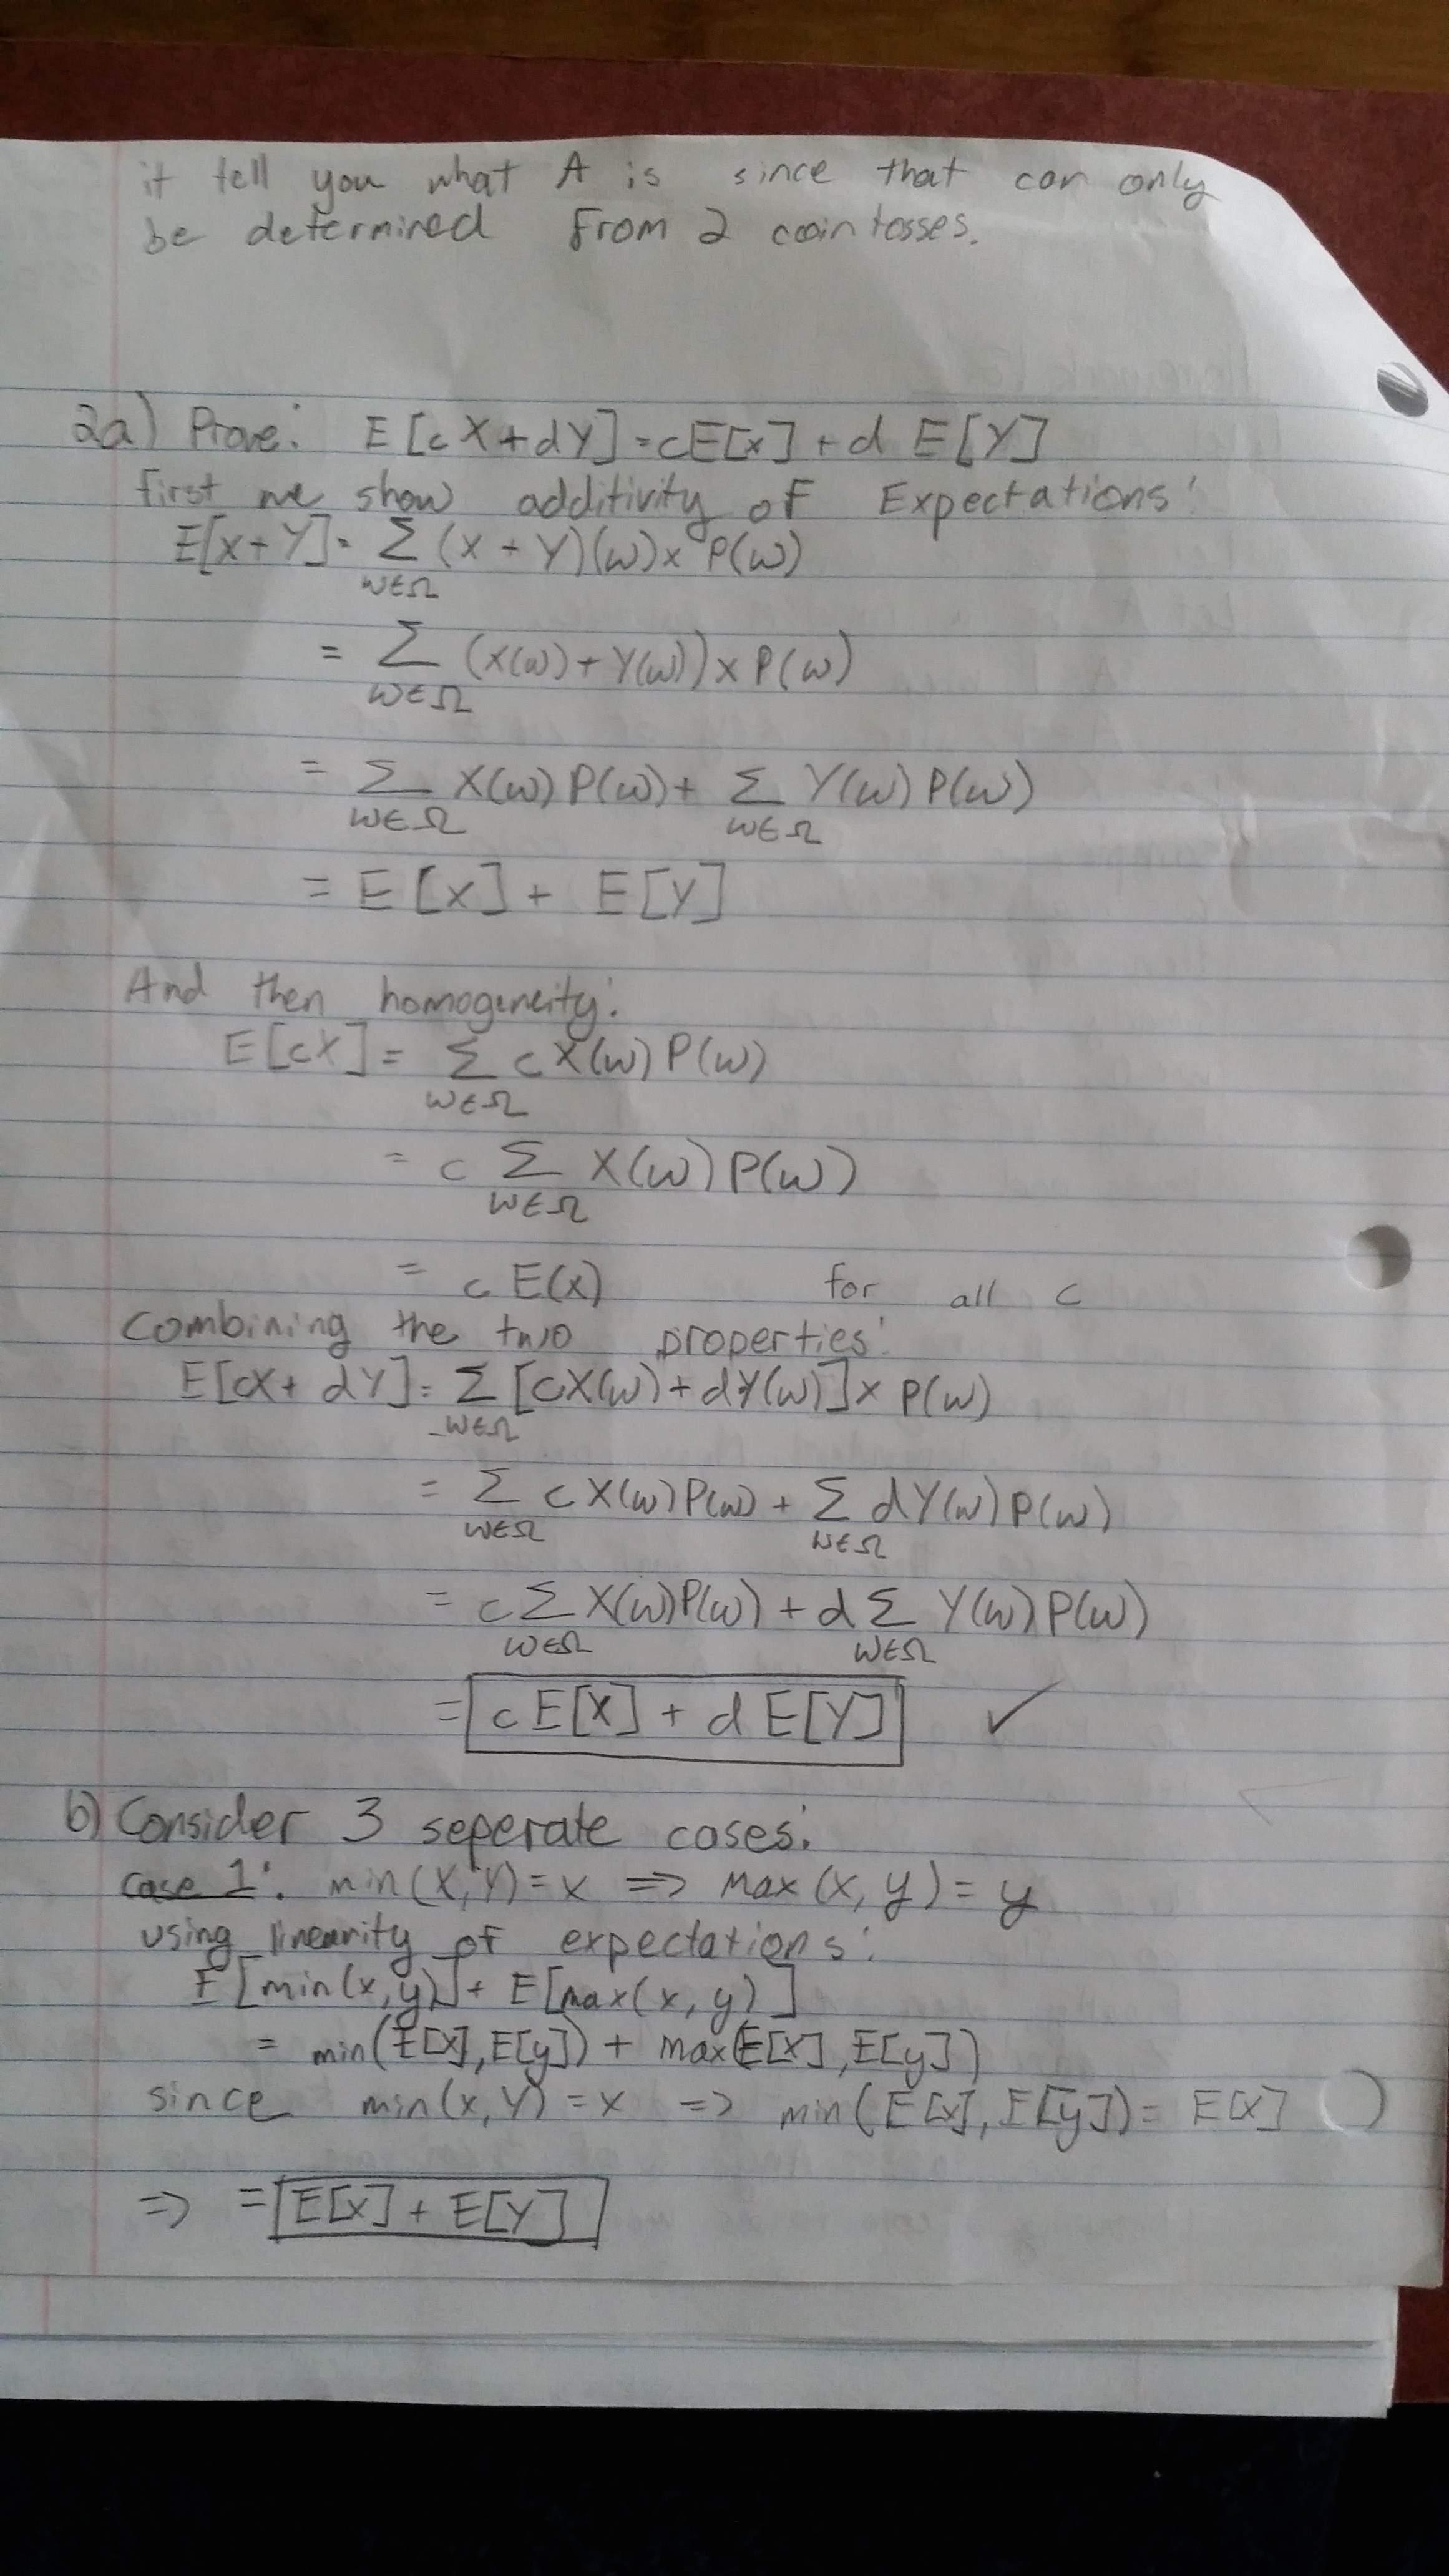 it tell you what A is since that can only
be determined from 2 coin tosses.
2a) Prove: E[cX+dY]=cE[x]+d E[Y]
first we show additivity of Expectations:
E[x+Y]= Σ (X + Y)(ω)x P(ω)
ω∈Ω
= Σ (X(ω)+Y(ω))x P(ω)
ω∈Ω
= Σ X(ω)P(ω)+ Σ Y(ω)P(ω)
ω∈Ω ω∈Ω
= E[x]+ E[Y]
And then homogeneity:
E[cX]= Σ c X(ω)P(ω)
ω∈Ω
= c Σ X(ω)P(ω)
ω∈Ω
= c E(x) for all c
Combining the two properties:
E[cX+ dY]= Σ [cX(ω)+dY(ω)]x P(ω)
ω∈Ω
= Σ c X(ω)P(ω) + Σ dY(ω)P(ω)
ω∈Ω ω∈Ω
= cΣ X(ω)P(ω) + dΣ Y(ω)P(ω)
ω∈Ω ω∈Ω
= cE[X] + d E[Y] ✓
b) Consider 3 seperate cases:
case 1: min(X,Y)=x => max(x,y)=y
using linearity of expectations:
E[min(x,y)]+ E[max(x,y)]
= min(E[x],E[y]) + max(E[x],E[y])
since min(x,Y)=x => min(E[x],E[y])= E[x] )
=> = E[x]+ E[Y]